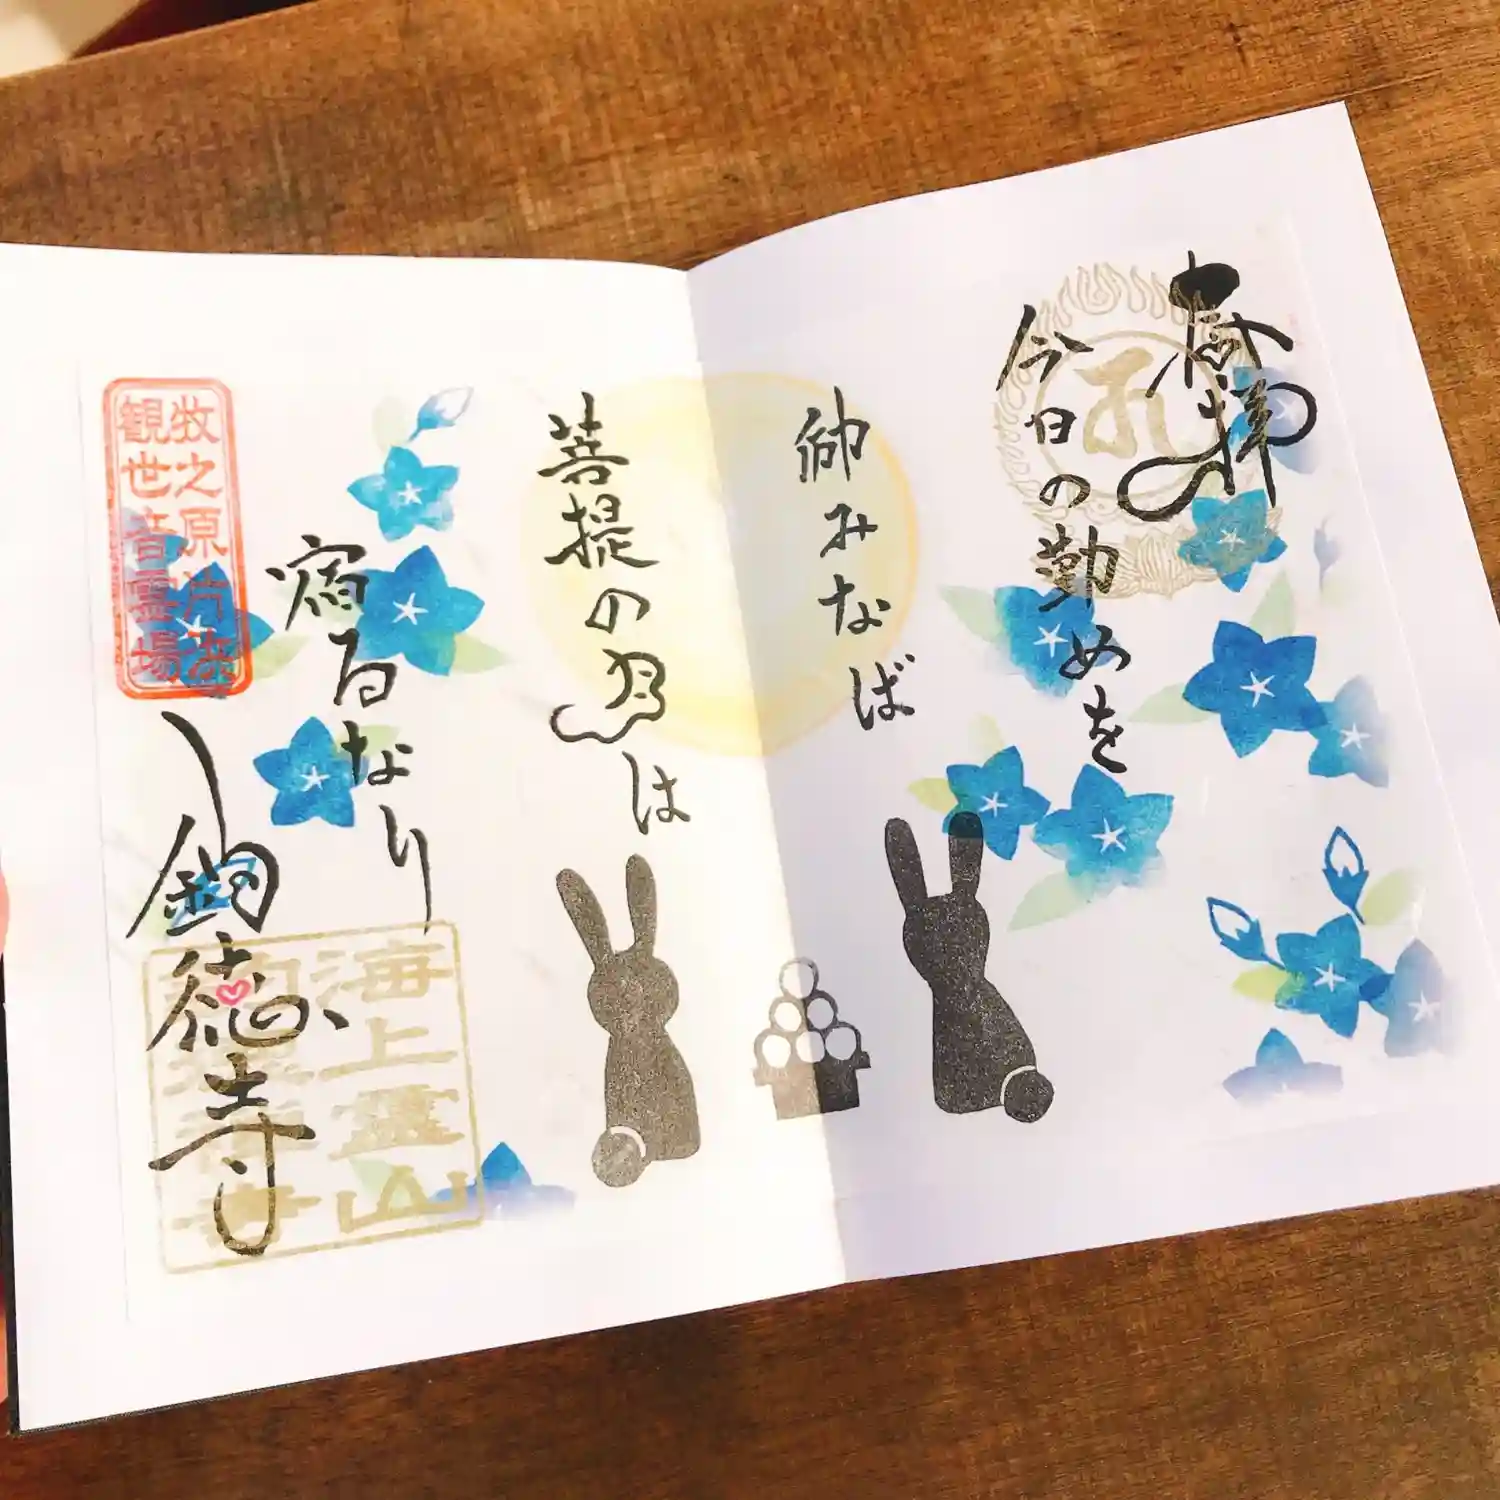 奉拝
今日の勤めを
励みなば
菩提の月は
宿るなり
釣徳寺
牧之原片浜
観世音霊場
海上霊山